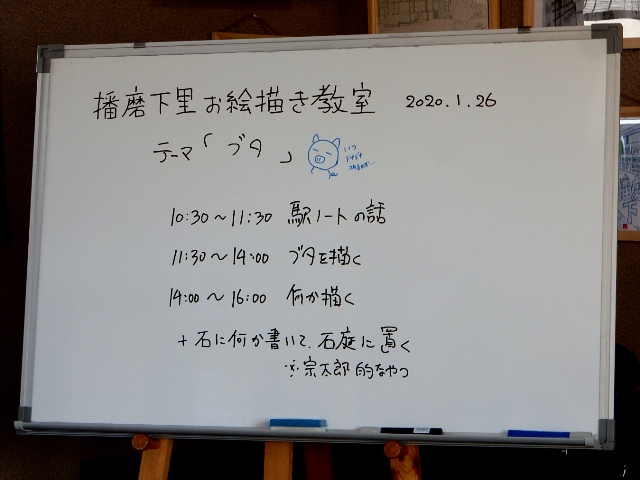 播磨下里お絵描き教室 2020.1.26
テーマ「ブタ」
いつ
10:30〜11:30 駅ノートの話
11:30〜14:00 ブタを描く
14:00〜16:00 何か描く
+ 石に何か書いて、石庭に置く
※宗太郎的なやつ